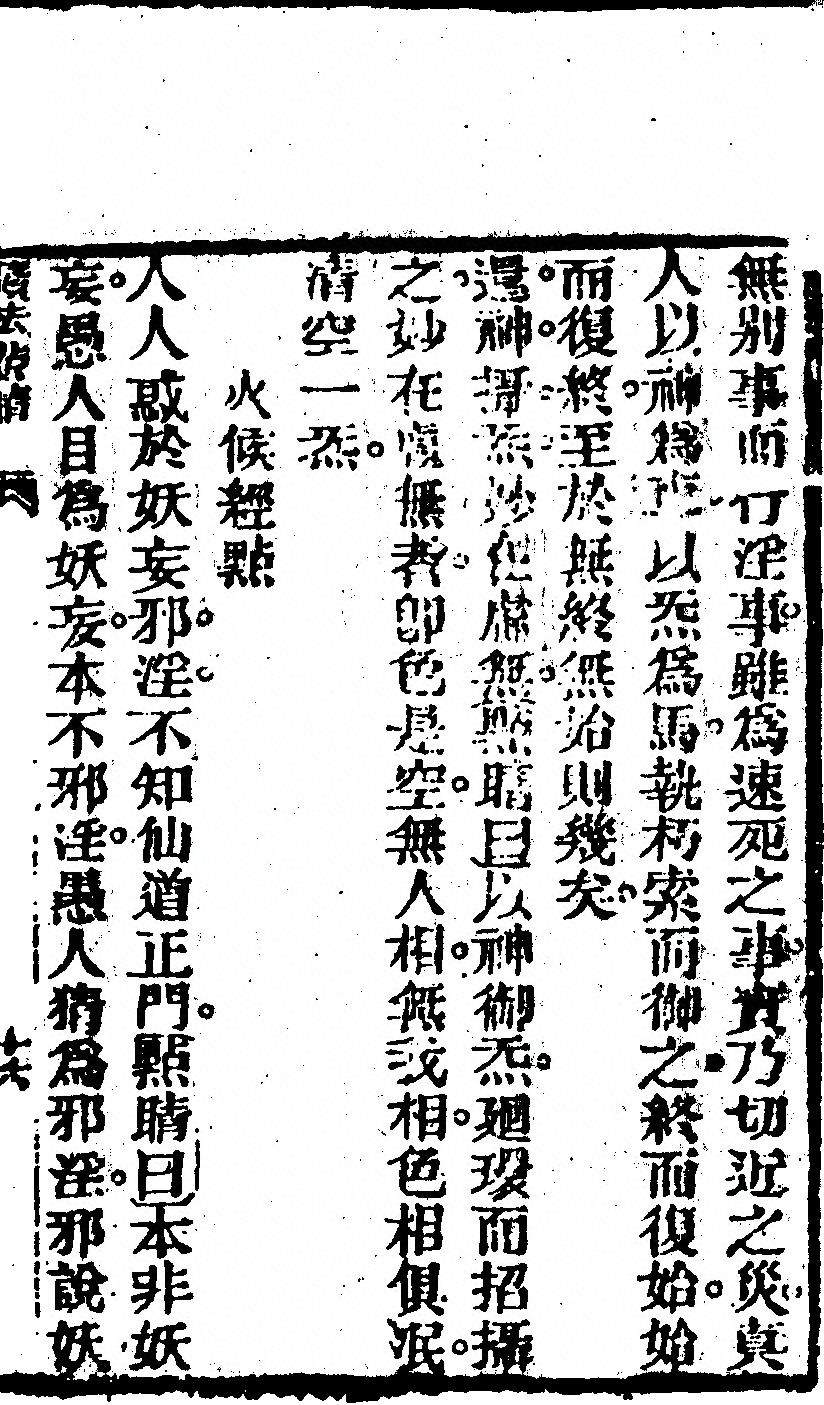 無別事而行淫事雖為速死之事實乃切近之災真
人以神為 以炁為馬執朽索而御之終而復始始
而復終至於無終無始則幾矣
還神攝炁妙在虛無點睛曰以神御炁廻環而招攝
之妙在虛無者即色是空無人相無我相色相俱泯
清空一炁
火候經點
人人惑於妖妄邪淫不知仙道正門點睛曰本非妖
妄愚人目為妖妄本不邪淫愚人猜為邪淫邪說妖